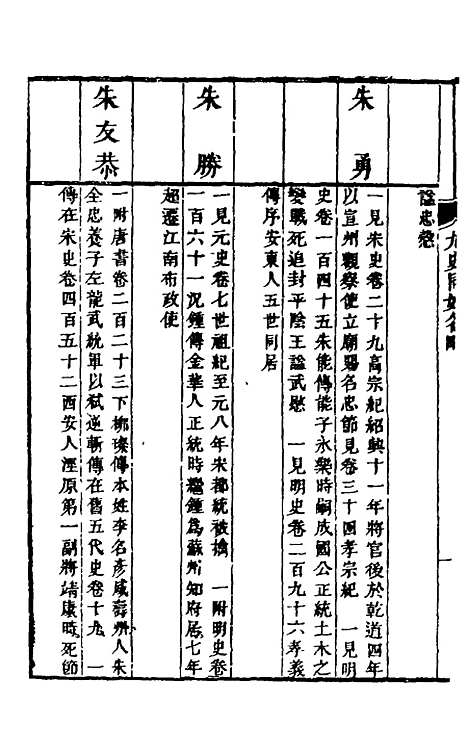 九史同姓名略
諡忠愍
朱勇
一見宋史卷二十九高宗紀紹興十一年將官後於乾道四年
以宣州觀察使立廟賜名忠節見卷三十四孝宗紀 一見明
史卷一百四十五朱能傳能子永樂時嗣成國公正統土木之
變戰死追封平陰王諡武愍 一見明史卷二百九十六孝義
傳序安東人五世同居
朱勝
一見元史卷七世祖紀至元八年宋都統被擒 一附明史卷
一百六十一況鍾傳金華人正統時繼鍾爲蘇州知府居七年
超遷江南布政使
朱友恭
一附唐書卷二百二十三下柳璨傳本姓李名彥威壽州人朱
全忠養子左龍武統軍以弒逆斬傳在舊五代史卷十九 一
傳在宋史卷四百五十二西安人涇原第一副將靖康時死節